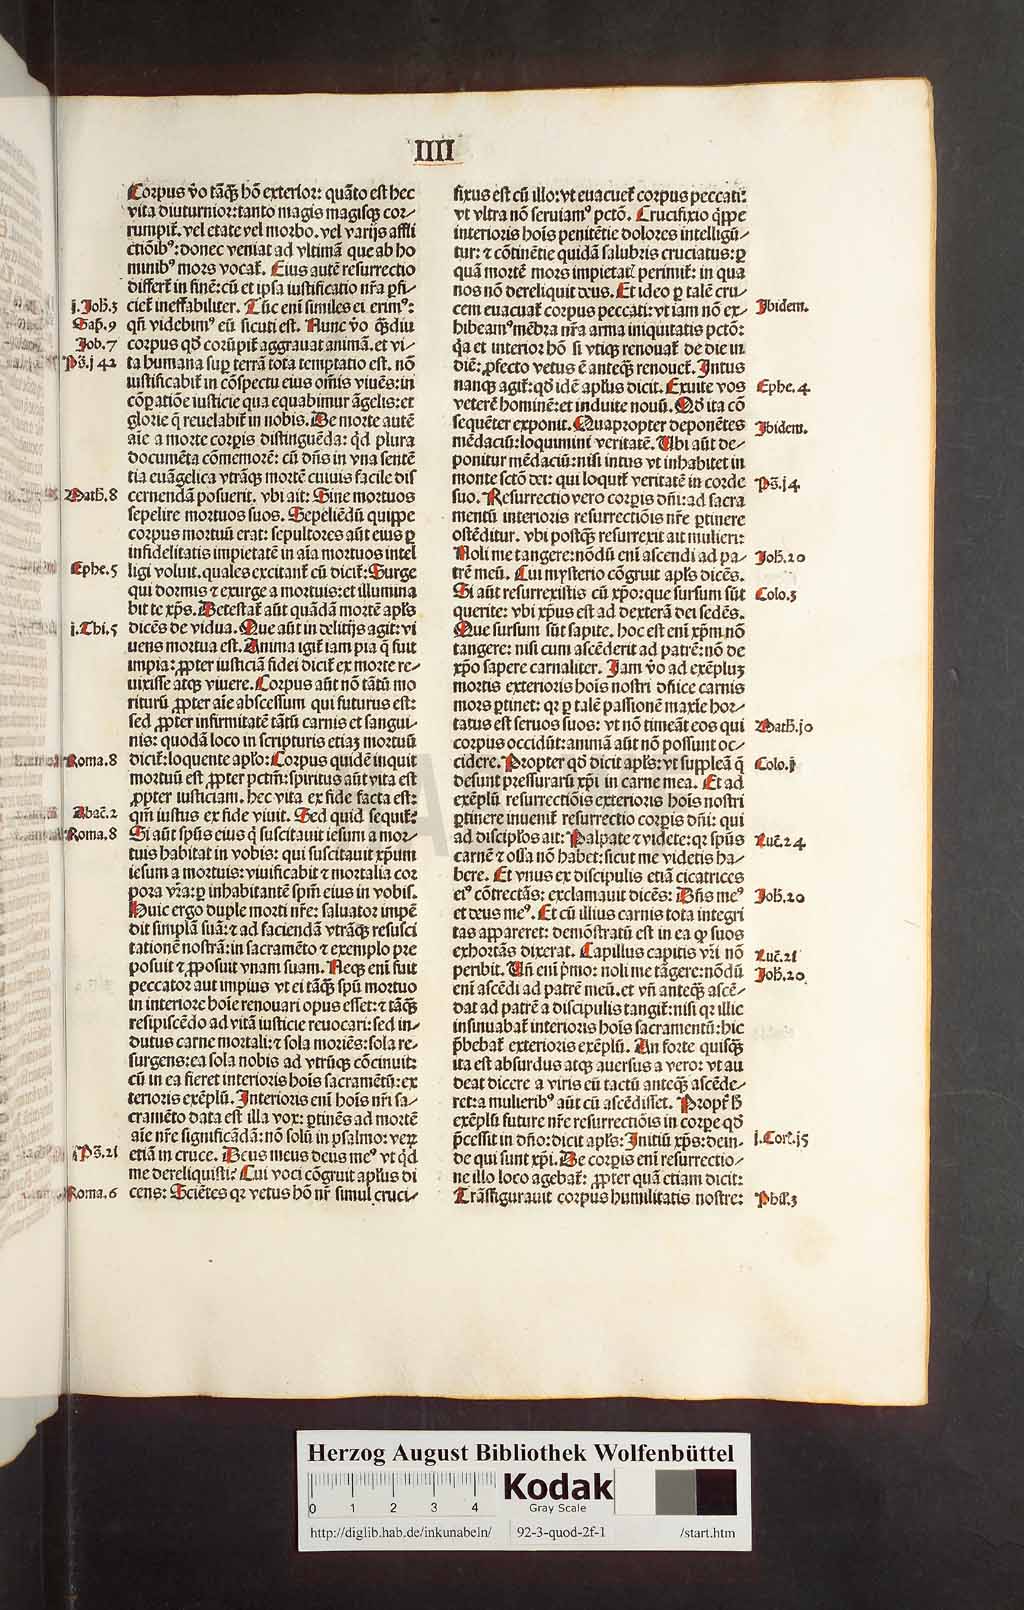 IIII
Corpus v̄o tāq̄ꝫ hō exterior: quāto est hec
vita diuturnior: tanto magis magisqꝫ cor⸗
rumpit᷑. vel etate vel morbo. vel varijs affli
ctiōibꝰ: donec veniat ad vltimā que ab ho
minibꝰ mors vocat᷑. Eius autē resurrectio
differt᷑ in finē: cū et ipsa iustificatio nr̄a ꝑfi⸗
j.Joh̄.3 ciet᷑ ineffabiliter. Tūc eni similes ei erimꝰ:
Sap̄.9 qm̄ videbimꝰ eū sicuti est. Nunc v̄o q̄ꝫdiu
Job.7 corpus qd̄ corūpit᷑ aggrauat animā. et vi⸗
Ps̄.j42 ta humana sup terrā tota temptatio est. nō
iustificabit᷑ in cōspectu eius om̄is viuēs: in
cōꝑatiōe iusticie qua equabimur āgelis: et
glorie q̄ reuelabit᷑ in nobis. De morte autē
aīe a morte corꝑis distinguēda: qd̄ plura
documēta cōmemorē: cū dn̄s in vna sentē
tia euāgelica vtrāqꝫ mortē cuiuis facile dis
Math̄.8 cernendā posuerit. vbi ait: Sine mortuos
sepelire mortuos suos. Sepeliēdū quippe
corpus mortuū erat: sepultores aūt eius ꝑ
infidelitatis impietatē in aīa mortuos intel
Ephe.5 ligi voluit. quales excitant᷑ cū dicit᷑: Surge
qui dormis ⁊ exurge a mortuis: et illumina
bit te xp̄s. Detestat᷑ aūt quādā mortē apl̄s
j.Thi.5 dicēs de vidua. Que aūt in delitijs agit: vi
uens mortua est. Anima igit᷑ iam pia q̄ fuit
impia: ꝓpter iusticiā fidei dicit᷑ ex morte re⸗
uixisse atqꝫ viuere. Corpus aūt nō tātū mo
riturū ꝓpter aīe abscessum qui futurus est:
sed ꝓpter infirmitatē tātū carnis et sangui⸗
nis: quodā loco in scripturis etiaꝫ mortuū
Roma.8 dicit᷑: loquente apl̄o: Corpus quidē inquit
mortuū est ꝓpter pctm̄: spiritus aūt vita est
ꝓpter iusticiam. hec vita ex fide facta est:
Abac̄.2 qm̄ iustus ex fide viuit. Sed quid sequit᷑:
Roma.8 Si aūt spūs eius q̄ suscitauit iesum a mor⸗
tuis habitat in vobis: qui suscitauit xp̄um
iesum a mortuis: viuificabit ⁊ mortalia cor
pora vr̄a: ꝑ inhabitantē spm̄ eius in vobis.
Huic ergo duple morti nr̄e: saluator impē
dit simplā suā: ⁊ ad faciendā vtrāqꝫ resusci
tationē nostrā: in sacramēto ⁊ exemplo pre
posuit ⁊ ꝓposuit vnam suam. Neqꝫ eni fuit
peccator aut impius vt ei tāq̄ꝫ spū mortuo
in interiore hoīe renouari opus esset: ⁊ tāq̄ꝫ
resipiscēdo ad vitā iusticie reuocari: sed in⸗
dutus carne mortali: ⁊ sola moriēs: sola re⸗
surgens: ea sola nobis ad vtrūqꝫ cōcinuit:
cū in ea fieret interioris hoīs sacramētū: ex
terioris exēplū. Interioris eni hoīs nr̄i sa⸗
cramēto data est illa vox: ꝑtinēs ad mortē
aīe nr̄e significādā: nō solū in psalmo: veꝝ
Ps̄.21 etiā in cruce. Deus meus deus meꝰ vt qd̄
me dereliquisti? Cui voci cōgruit apl̄us di
Roma.6 cens: Sciētes qꝛ vetus hō nr̄ simul cruci⸗
fixus est cū illo: vt euacuet᷑ corpus peccati:
vt vltra nō seruiamꝰ pctō. Crucifixio q̄ppe
interioris hoīs penitētie dolores intelligū⸗
tur: ⁊ cōtinētie quidā salubris cruciatus: ꝑ
quā mortē mors impietat᷑ perimit᷑: in qua
nos nō dereliquit deus. Et ideo ꝑ talē cru⸗
cem euacuat᷑ corpus peccati: vt iam nō ex⸗ Ibidem.
hibeamꝰ mēbra nr̄a arma iniquitatis pctō:
q̄a et interior hō si vtiqꝫ renouat᷑ de die in
diē: ꝓfecto vetus ē anteq̄ꝫ renouet᷑. Intus
nanqꝫ agit᷑: qd̄ idē apl̄us dicit. Exuite vos Ephe.4
veterē hominē: et induite nouū. Qd̄ ita cō
sequēter exponit. Quapropter deponētes Ibidem.
mēdaciū: loquimini veritatē. Ubi aūt de⸗
ponitur mēdaciū: nisi intus vt inhabitet in
monte sctō dei: qui loquit᷑ veritatē in corde Ps̄.j4
suo. Resurrectio vero corꝑis dn̄i: ad sacra
mentū interioris resurrectiōis nr̄e ꝑtinere
ostēditur. vbi postq̄ꝫ resurrexit ait mulieri:
Noli me tangere: nōdū eni ascendi ad pa⸗ Joh̄.20
trē meū. Cui mysterio cōgruit apl̄s dicēs.
Si aūt resurrexistis cū xp̄o: que sursum sūt Colo.3
querite: vbi xp̄us est ad dexterā dei sedēs.
Que sursum sūt sapite. hoc est eni xp̄m nō
tangere: nisi cum ascēderit ad patrē: nō de
xp̄o sapere carnaliter. Iam v̄o ad exēpluꝫ
mortis exterioris hoīs nostri dn̄ice carnis
mors ꝑtinet: qꝛ ꝑ talē passionē maxīe hor⸗
tatus est seruos suos: vt nō timeāt eos qui Math̄.jo
corpus occidūt: animā aūt nō possunt oc⸗
cidere. Propter qd̄ dicit apl̄s: vt suppleā q̄ Colo.j
desunt pressurarū xp̄i in carne mea. Et ad
exēplū resurrectiōis exterioris hoīs nostri
ꝑtinere inuenit᷑ resurrectio corꝑis dn̄i: qui
ad discipl̄os ait: Palpate ⁊ videte: qꝛ spūs Luc̄.24
carnē ⁊ ossa nō habet: sicut me videtis ha⸗
bere. Et vnus ex discipulis etiā cicatrices
eiꝰ cōtrectās: exclamauit dicēs: Dn̄s meꝰ Joh̄.20
et deus meꝰ. Et cū illius carnis tota integri
tas appareret: demōstratū est in ea qꝫ suos
exhortās dixerat. Capillus capitis vr̄i nō Luc̄.21
peribit. Un̄ eni p̄mo: noli me tāgere: nōdū Joh̄.20
eni ascēdi ad patrē meū. et vn̄ anteq̄ꝫ ascē⸗
dat ad patrē a discipulis tangit᷑: nisi qꝛ illic
insinuabat᷑ interioris hoīs sacramentū: hic
p̄bebat᷑ exterioris exēplū. An forte quisq̄ꝫ
ita est absurdus atqꝫ auersus a vero: vt au
deat dicere a viris eū tactū anteq̄ꝫ ascēde⸗
ret: a mulieribꝰ aūt cū ascēdisset. Propt᷑ h̄
exēplū future nr̄e resurrectiōis in corꝑe qd̄
p̄cessit in dn̄o: dicit apl̄s: Initiū xp̄s: dein⸗ j.Cor̄.j5
de qui sunt xp̄i. De corꝑis eni resurrectio⸗
ne illo loco agebat᷑: ꝓpter quā etiam dicit:
Trāsfigurauit corpus humilitatis nostre: Phil̄.3
Herzog August Bibliothek Wolfenbüttel
0 1 2 3 4
Kodak
Gray Scale
http://diglib.hab.de/inkunabeln/ 92-3-quod-2f-1 /start.htm